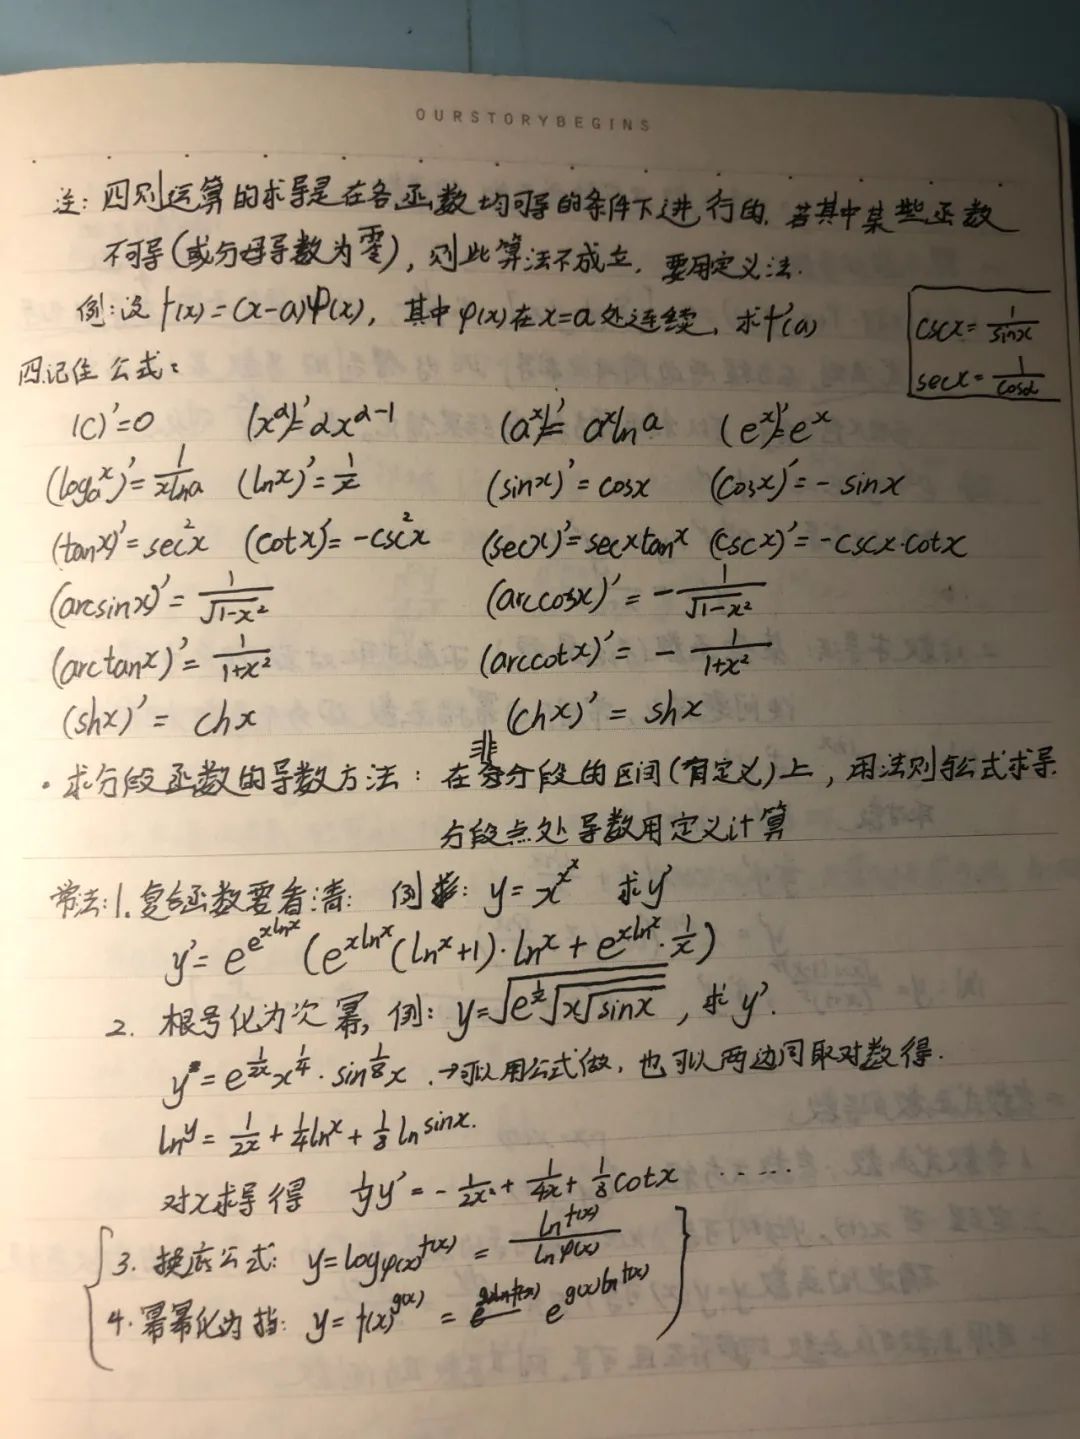 OURSTORYBEGINS
注: 四则运算的求导是在各函数均可导的条件下进行的, 若其中某些函数
不可导(或分母导数为零), 则此算法不成立, 要用定义法.
例: 设 f(x)=(x-a)φ(x), 其中 φ(x)在x=a处连续, 求f'(a)
cscx=1/sinx
secx=1/cosx
四.记住公式:
(C)'=0 (x^α)'=αx^(α-1) (a^x)'=a^x ln a (e^x)'=e^x
(log_a x)'=1/(xlna) (lnx)'=1/x (sinx)'=cosx (cosx)'=-sinx
(tanx)'=sec²x (cotx)'=-csc²x (secx)'=secxtanx (cscx)'=-cscx·cotx
(arcsinx)'=1/√(1-x²) (arccosx)'=-1/√(1-x²)
(arctanx)'=1/(1+x²) (arccotx)'=-1/(1+x²)
(shx)'=chx (chx)'=shx
·求分段函数的导数方法: 在非分段的区间(有定义)上, 用法则与公式求导.
分段点处导数用定义计算
常法: 1. 复合函数要看清: 例: y=x^(x^x) 求y'
y'=e^(e^(xlnx))(e^(xlnx)(lnx+1)·lnx+e^(xlnx)·1/x)
2. 根号化为次幂, 例: y=√(e^(1/x)√(x√(sinx))), 求y'.
y=e^(1/2x)x^(1/4)·sin^(1/8)x. →可以用公式做, 也可以两边同取对数得.
lny=1/2x+1/4lnx+1/8lnsinx.
对x求导得 1/y y'=-1/2x²+1/4x+1/8cotx ……
3. 换底公式: y=log_φ(x) f(x)=lnf(x)/lnφ(x)
4. 幂幂化为指: y=f(x)^g(x)=e^(g(x)lnf(x))